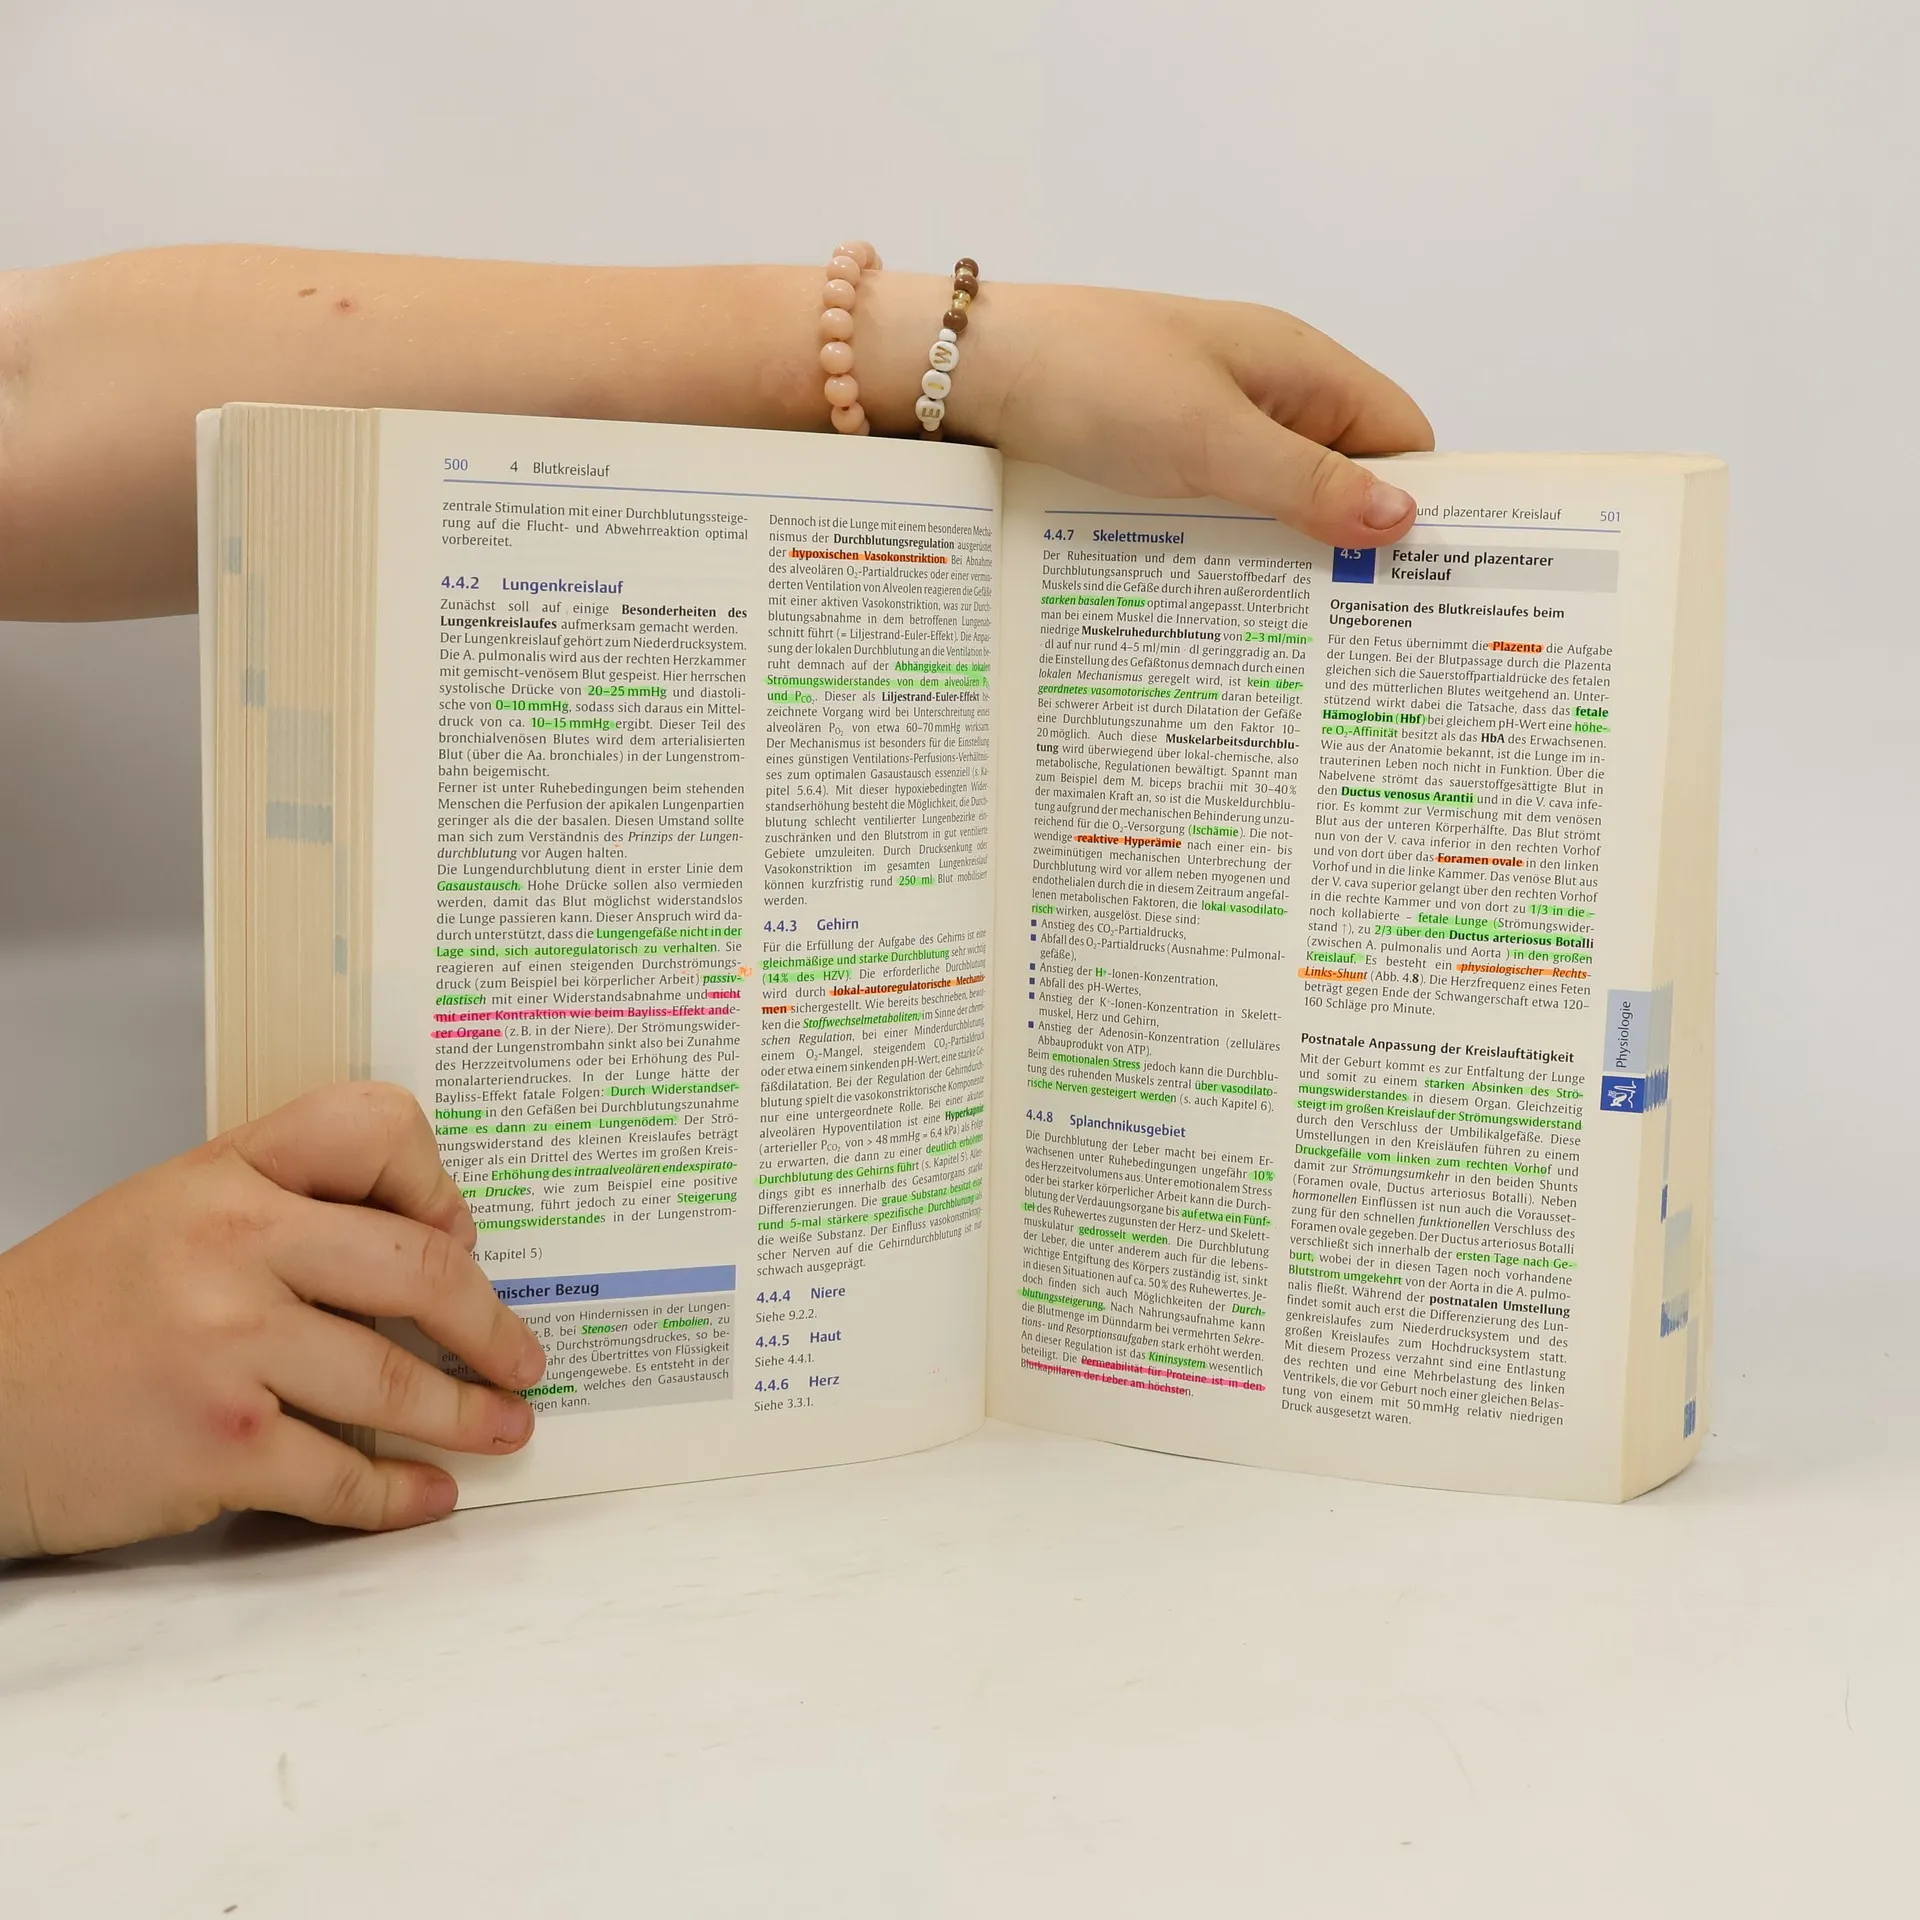 500 4 Blutkreislauf
zentrale Stimulation mit einer Durchblutungssteige-
rung auf die Flucht- und Abwehrreaktion optimal
vorbereitet.
4.4.2 Lungenkreislauf
Zunächst soll auf einige Besonderheiten des
Lungenkreislaufes aufmerksam gemacht werden.
Der Lungenkreislauf gehört zum Niederdrucksystem.
Die A. pulmonalis wird aus der rechten Herzkammer
mit gemischt-venösem Blut gespeist. Hier herrschen
systolische Drücke von 20–25 mmHg und diastoli-
sche von 0–10 mmHg, sodass sich daraus ein Mittel-
druck von ca. 10–15 mmHg ergibt. Dieser Teil des
bronchialvenösen Blutes wird dem arterialisierten
Blut (über die Aa. bronchiales) in der Lungenstrom-
bahn beigemischt.
Ferner ist unter Ruhebedingungen beim stehenden
Menschen die Perfusion der apikalen Lungenpartien
geringer als die der basalen. Diesen Umstand sollte
man sich zum Verständnis des Prinzips der Lungen-
durchblutung vor Augen halten.
Die Lungendurchblutung dient in erster Linie dem
Gasaustausch. Hohe Drücke sollen also vermieden
werden, damit das Blut möglichst widerstandslos
die Lunge passieren kann. Dieser Anspruch wird da-
durch unterstützt, dass die Lungengefäße nicht in der
Lage sind, sich autoregulatorisch zu verhalten. Sie
reagieren auf einen steigenden Durchströmungs-
druck (zum Beispiel bei körperlicher Arbeit) passiv-
elastisch mit einer Widerstandsabnahme und nicht
mit einer Kontraktion wie beim Bayliss-Effekt ande-
rer Organe (z. B. in der Niere). Der Strömungswider-
stand der Lungenstrombahn sinkt also bei Zunahme
des Herzzeitvolumens oder bei Erhöhung des Pul-
monalarteriendruckes. In der Lunge hätte der
Bayliss-Effekt fatale Folgen: Durch Widerstandser-
höhung in den Gefäßen bei Durchblutungszunahme
käme es dann zu einem Lungenödem. Der Strö-
mungswiderstand des kleinen Kreislaufes beträgt
weniger als ein Drittel des Wertes im großen Kreis-
f. Eine Erhöhung des intraalveolären endexspirato-
en Druckes, wie zum Beispiel eine positive
beatmung, führt jedoch zu einer Steigerung
römungswiderstandes in der Lungenstrom-
h Kapitel 5)
nischer Bezug
rund von Hindernissen in der Lungen-
z. B. bei Stenosen oder Embolien, zu
s Durchströmungsdruckes, so be-
ein fahr des Übertrittes von Flüssigkeit
Lungengewebe. Es entsteht in der
genödem, welches den Gasaustausch
tigen kann.
Dennoch ist die Lunge mit einem besonderen Mecha-
nismus der Durchblutungsregulation ausgerüstet,
der hypoxischen Vasokonstriktion. Bei Abnahme
des alveolären O₂-Partialdruckes oder einer vermin-
derten Ventilation von Alveolen reagieren die Gefäße
mit einer aktiven Vasokonstriktion, was zur Durch-
blutungsabnahme in dem betroffenen Lungenab-
schnitt führt (= Liljestrand-Euler-Effekt). Die Anpas-
sung der lokalen Durchblutung an die Ventilation be-
ruht demnach auf der Abhängigkeit des lokalen
Strömungswiderstandes von dem alveolären P
und PCO₂. Dieser als Liljestrand-Euler-Effekt be-
zeichnete Vorgang wird bei Unterschreitung eines
alveolären PO₂ von etwa 60–70 mmHg wirksam.
Der Mechanismus ist besonders für die Einstellung
eines günstigen Ventilations-Perfusions-Verhältnis-
ses zum optimalen Gasaustausch essenziell (s. Ka-
pitel 5.6.4). Mit dieser hypoxiebedingten Wider-
standserhöhung besteht die Möglichkeit, die Durch-
blutung schlecht ventilierter Lungenbezirke ein-
zuschränken und den Blutstrom in gut ventilierte
Gebiete umzuleiten. Durch Drucksenkung oder
Vasokonstriktion im gesamten Lungenkreislauf
können kurzfristig rund 250 ml Blut mobilisiert
werden.
4.4.3 Gehirn
Für die Erfüllung der Aufgabe des Gehirns ist eine
gleichmäßige und starke Durchblutung sehr wichtig
(14% des HZV). Die erforderliche Durchblutung
wird durch lokal-autoregulatorische Mechanis-
men sichergestellt. Wie bereits beschrieben, bewir-
ken die Stoffwechselmetaboliten, im Sinne der chemi-
schen Regulation, bei einer Minderdurchblutung,
einem O₂-Mangel, steigendem CO₂-Partialdruck
oder etwa einem sinkenden pH-Wert, eine starke Ge-
fäßdilatation. Bei der Regulation der Gehirndurch-
blutung spielt die vasokonstriktorische Komponente
nur eine untergeordnete Rolle. Bei einer akuten
alveolären Hypoventilation ist eine Hyperkapnie
(arterieller PCO₂ von > 48 mmHg = 6,4 kPa) als Folge
zu erwarten, die dann zu einer deutlich erhöhten
Durchblutung des Gehirns führt (s. Kapitel 5). Aller-
dings gibt es innerhalb des Gesamtorgans starke
Differenzierungen. Die graue Substanz besitzt eine
rund 5-mal stärkere spezifische Durchblutung als
die weiße Substanz. Der Einfluss vasokonstriktori-
scher Nerven auf die Gehirndurchblutung ist nur
schwach ausgeprägt.
4.4.4 Niere
Siehe 9.2.2.
4.4.5 Haut
Siehe 4.4.1.
4.4.6 Herz
Siehe 3.3.1.
und plazentarer Kreislauf 501
4.4.7 Skelettmuskel
Der Ruhesituation und dem dann verminderten
Durchblutungsanspruch und Sauerstoffbedarf des
Muskels sind die Gefäße durch ihren außerordentlich
starken basalen Tonus optimal angepasst. Unterbricht
man bei einem Muskel die Innervation, so steigt die
niedrige Muskelruhedurchblutung von 2–3 ml/min
· dl auf nur rund 4–5 ml/min · dl geringgradig an. Da
die Einstellung des Gefäßtonus demnach durch einen
lokalen Mechanismus geregelt wird, ist kein über-
geordnetes vasomotorisches Zentrum daran beteiligt.
Bei schwerer Arbeit ist durch Dilatation der Gefäße
eine Durchblutungszunahme um den Faktor 10–
20 möglich. Auch diese Muskelarbeitsdurchblu-
tung wird überwiegend über lokal-chemische, also
metabolische, Regulationen bewältigt. Spannt man
zum Beispiel dem M. biceps brachii mit 30–40%
der maximalen Kraft an, so ist die Muskeldurchblu-
tung aufgrund der mechanischen Behinderung unzu-
reichend für die O₂-Versorgung (Ischämie). Die not-
wendige reaktive Hyperämie nach einer ein- bis
zweiminütigen mechanischen Unterbrechung der
Durchblutung wird vor allem neben myogenen und
endothelialen durch die in diesem Zeitraum angefal-
lenen metabolischen Faktoren, die lokal vasodilato-
risch wirken, ausgelöst. Diese sind:
■ Anstieg des CO₂-Partialdrucks,
■ Abfall des O₂-Partialdrucks (Ausnahme: Pulmonal-
gefäße),
■ Anstieg der H⁺-Ionen-Konzentration,
■ Abfall des pH-Wertes,
■ Anstieg der K⁺-Ionen-Konzentration in Skelett-
muskel, Herz und Gehirn,
■ Anstieg der Adenosin-Konzentration (zelluläres
Abbauprodukt von ATP).
Beim emotionalen Stress jedoch kann die Durchblu-
tung des ruhenden Muskels zentral über vasodilato-
rische Nerven gesteigert werden (s. auch Kapitel 6).
4.4.8 Splanchnikusgebiet
Die Durchblutung der Leber macht bei einem Er-
wachsenen unter Ruhebedingungen ungefähr 10%
des Herzzeitvolumens aus. Unter emotionalem Stress
oder bei starker körperlicher Arbeit kann die Durch-
blutung der Verdauungsorgane bis auf etwa ein Fünf-
tel des Ruhewertes zugunsten der Herz- und Skelett-
muskulatur gedrosselt werden. Die Durchblutung
der Leber, die unter anderem auch für die lebens-
wichtige Entgiftung des Körpers zuständig ist, sinkt
in diesen Situationen auf ca. 50% des Ruhewertes. Je-
doch finden sich auch Möglichkeiten der Durch-
blutungssteigerung. Nach Nahrungsaufnahme kann
die Blutmenge im Dünndarm bei vermehrten Sekre-
tions- und Resorptionsaufgaben stark erhöht werden.
An dieser Regulation ist das Kininsystem wesentlich
beteiligt. Die Permeabilität für Proteine ist in den
Blutkapillaren der Leber am höchsten.
4.5 Fetaler und plazentarer
Kreislauf
Organisation des Blutkreislaufes beim
Ungeborenen
Für den Fetus übernimmt die Plazenta die Aufgabe
der Lungen. Bei der Blutpassage durch die Plazenta
gleichen sich die Sauerstoffpartialdrücke des fetalen
und des mütterlichen Blutes weitgehend an. Unter-
stützend wirkt dabei die Tatsache, dass das fetale
Hämoglobin (Hbf) bei gleichem pH-Wert eine höhe-
re O₂-Affinität besitzt als das HbA des Erwachsenen.
Wie aus der Anatomie bekannt, ist die Lunge im in-
trauterinen Leben noch nicht in Funktion. Über die
Nabelvene strömt das sauerstoffgesättigte Blut in
den Ductus venosus Arantii und in die V. cava infe-
rior. Es kommt zur Vermischung mit dem venösen
Blut aus der unteren Körperhälfte. Das Blut strömt
nun von der V. cava inferior in den rechten Vorhof
und von dort über das Foramen ovale in den linken
Vorhof und in die linke Kammer. Das venöse Blut aus
der V. cava superior gelangt über den rechten Vorhof
in die rechte Kammer und von dort zu 1/3 in die –
noch kollabierte – fetale Lunge (Strömungswider-
stand ↑), zu 2/3 über den Ductus arteriosus Botalli
(zwischen A. pulmonalis und Aorta ) in den großen
Kreislauf. Es besteht ein physiologischer Rechts-
Links-Shunt (Abb. 4.8). Die Herzfrequenz eines Feten
beträgt gegen Ende der Schwangerschaft etwa 120–
160 Schläge pro Minute.
Postnatale Anpassung der Kreislauftätigkeit
Mit der Geburt kommt es zur Entfaltung der Lunge
und somit zu einem starken Absinken des Strö-
mungswiderstandes in diesem Organ. Gleichzeitig
steigt im großen Kreislauf der Strömungswiderstand
durch den Verschluss der Umbilikalgefäße. Diese
Umstellungen in den Kreisläufen führen zu einem
Druckgefälle vom linken zum rechten Vorhof und
damit zur Strömungsumkehr in den beiden Shunts
(Foramen ovale, Ductus arteriosus Botalli). Neben
hormonellen Einflüssen ist nun auch die Vorausset-
zung für den schnellen funktionellen Verschluss des
Foramen ovale gegeben. Der Ductus arteriosus Botalli
verschließt sich innerhalb der ersten Tage nach Ge-
burt, wobei der in diesen Tagen noch vorhandene
Blutstrom umgekehrt von der Aorta in die A. pulmo-
nalis fließt. Während der postnatalen Umstellung
findet somit auch erst die Differenzierung des Lun-
genkreislaufes zum Niederdrucksystem und des
großen Kreislaufes zum Hochdrucksystem statt.
Mit diesem Prozess verzahnt sind eine Entlastung
des rechten und eine Mehrbelastung des linken
Ventrikels, die vor Geburt noch einer gleichen Belas-
tung von einem mit 50 mmHg relativ niedrigen
Druck ausgesetzt waren.
Physiologie